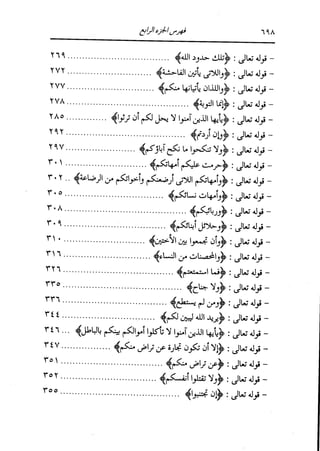 ٦٩٨ فهرس الجزء الرابع
- قوله تعالى : ﴿تلك حدود الله﴾ ........ ٢٦٩
- قوله تعالى : ﴿واللاتي يأتين الفاحشة﴾ ........ ٢٧٢
- قوله تعالى : ﴿واللذان يأتيانها منكم﴾ ........ ٢٧٧
- قوله تعالى : ﴿إنما التوبة﴾ ........ ٢٧٨
- قوله تعالى : ﴿يأيها الذين آمنوا لا يحل لكم أن ترثوا﴾ ........ ٢٨٥
- قوله تعالى : ﴿وإن أردتم﴾ ........ ٢٩٢
- قوله تعالى : ﴿ولا تنكحوا ما نكح آباؤكم﴾ ........ ٢٩٧
- قوله تعالى : ﴿حرمت عليكم أمهاتكم﴾ ........ ٣٠١
- قوله تعالى : ﴿وأمهاتكم اللاتي أرضعنكم وأخواتكم من الرضاعة﴾ .. ٣٠٢
- قوله تعالى : ﴿وأمهات نسائكم﴾ ........ ٣٠٥
- قوله تعالى : ﴿وربائبكم﴾ ........ ٣٠٨
- قوله تعالى : ﴿وحلائل أبنائكم﴾ ........ ٣٠٩
- قوله تعالى : ﴿وأن تجمعوا بين الأختين﴾ ........ ٣١٠
- قوله تعالى : ﴿والمحصنات من النساء﴾ ........ ٣١٦
- قوله تعالى : ﴿فما استمتعتم﴾ ........ ٣٢٦
- قوله تعالى : ﴿ولا جناح﴾ ........ ٣٣٥
- قوله تعالى : ﴿ومن لم يستطع﴾ ........ ٣٣٦
- قوله تعالى : ﴿يريد الله ليبين لكم﴾ ........ ٣٤٤
- قوله تعالى : ﴿يأيها الذين آمنوا لا تأكلوا أموالكم بينكم بالباطل﴾ ... ٣٤٦
- قوله تعالى : ﴿إلا أن تكون تجارة عن تراض منكم﴾ ........ ٣٤٧
- قوله تعالى : ﴿عن تراض منكم﴾ ........ ٣٥١
- قوله تعالى : ﴿ولا تقتلوا أنفسكم﴾ ........ ٣٥٢
- قوله تعالى : ﴿إن تجتنبوا﴾ ........ ٣٥٥